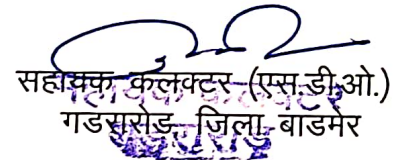 सहायक कलक्टर (एस.डी.ओ.)
गडरारोड, जिला बाडमेर